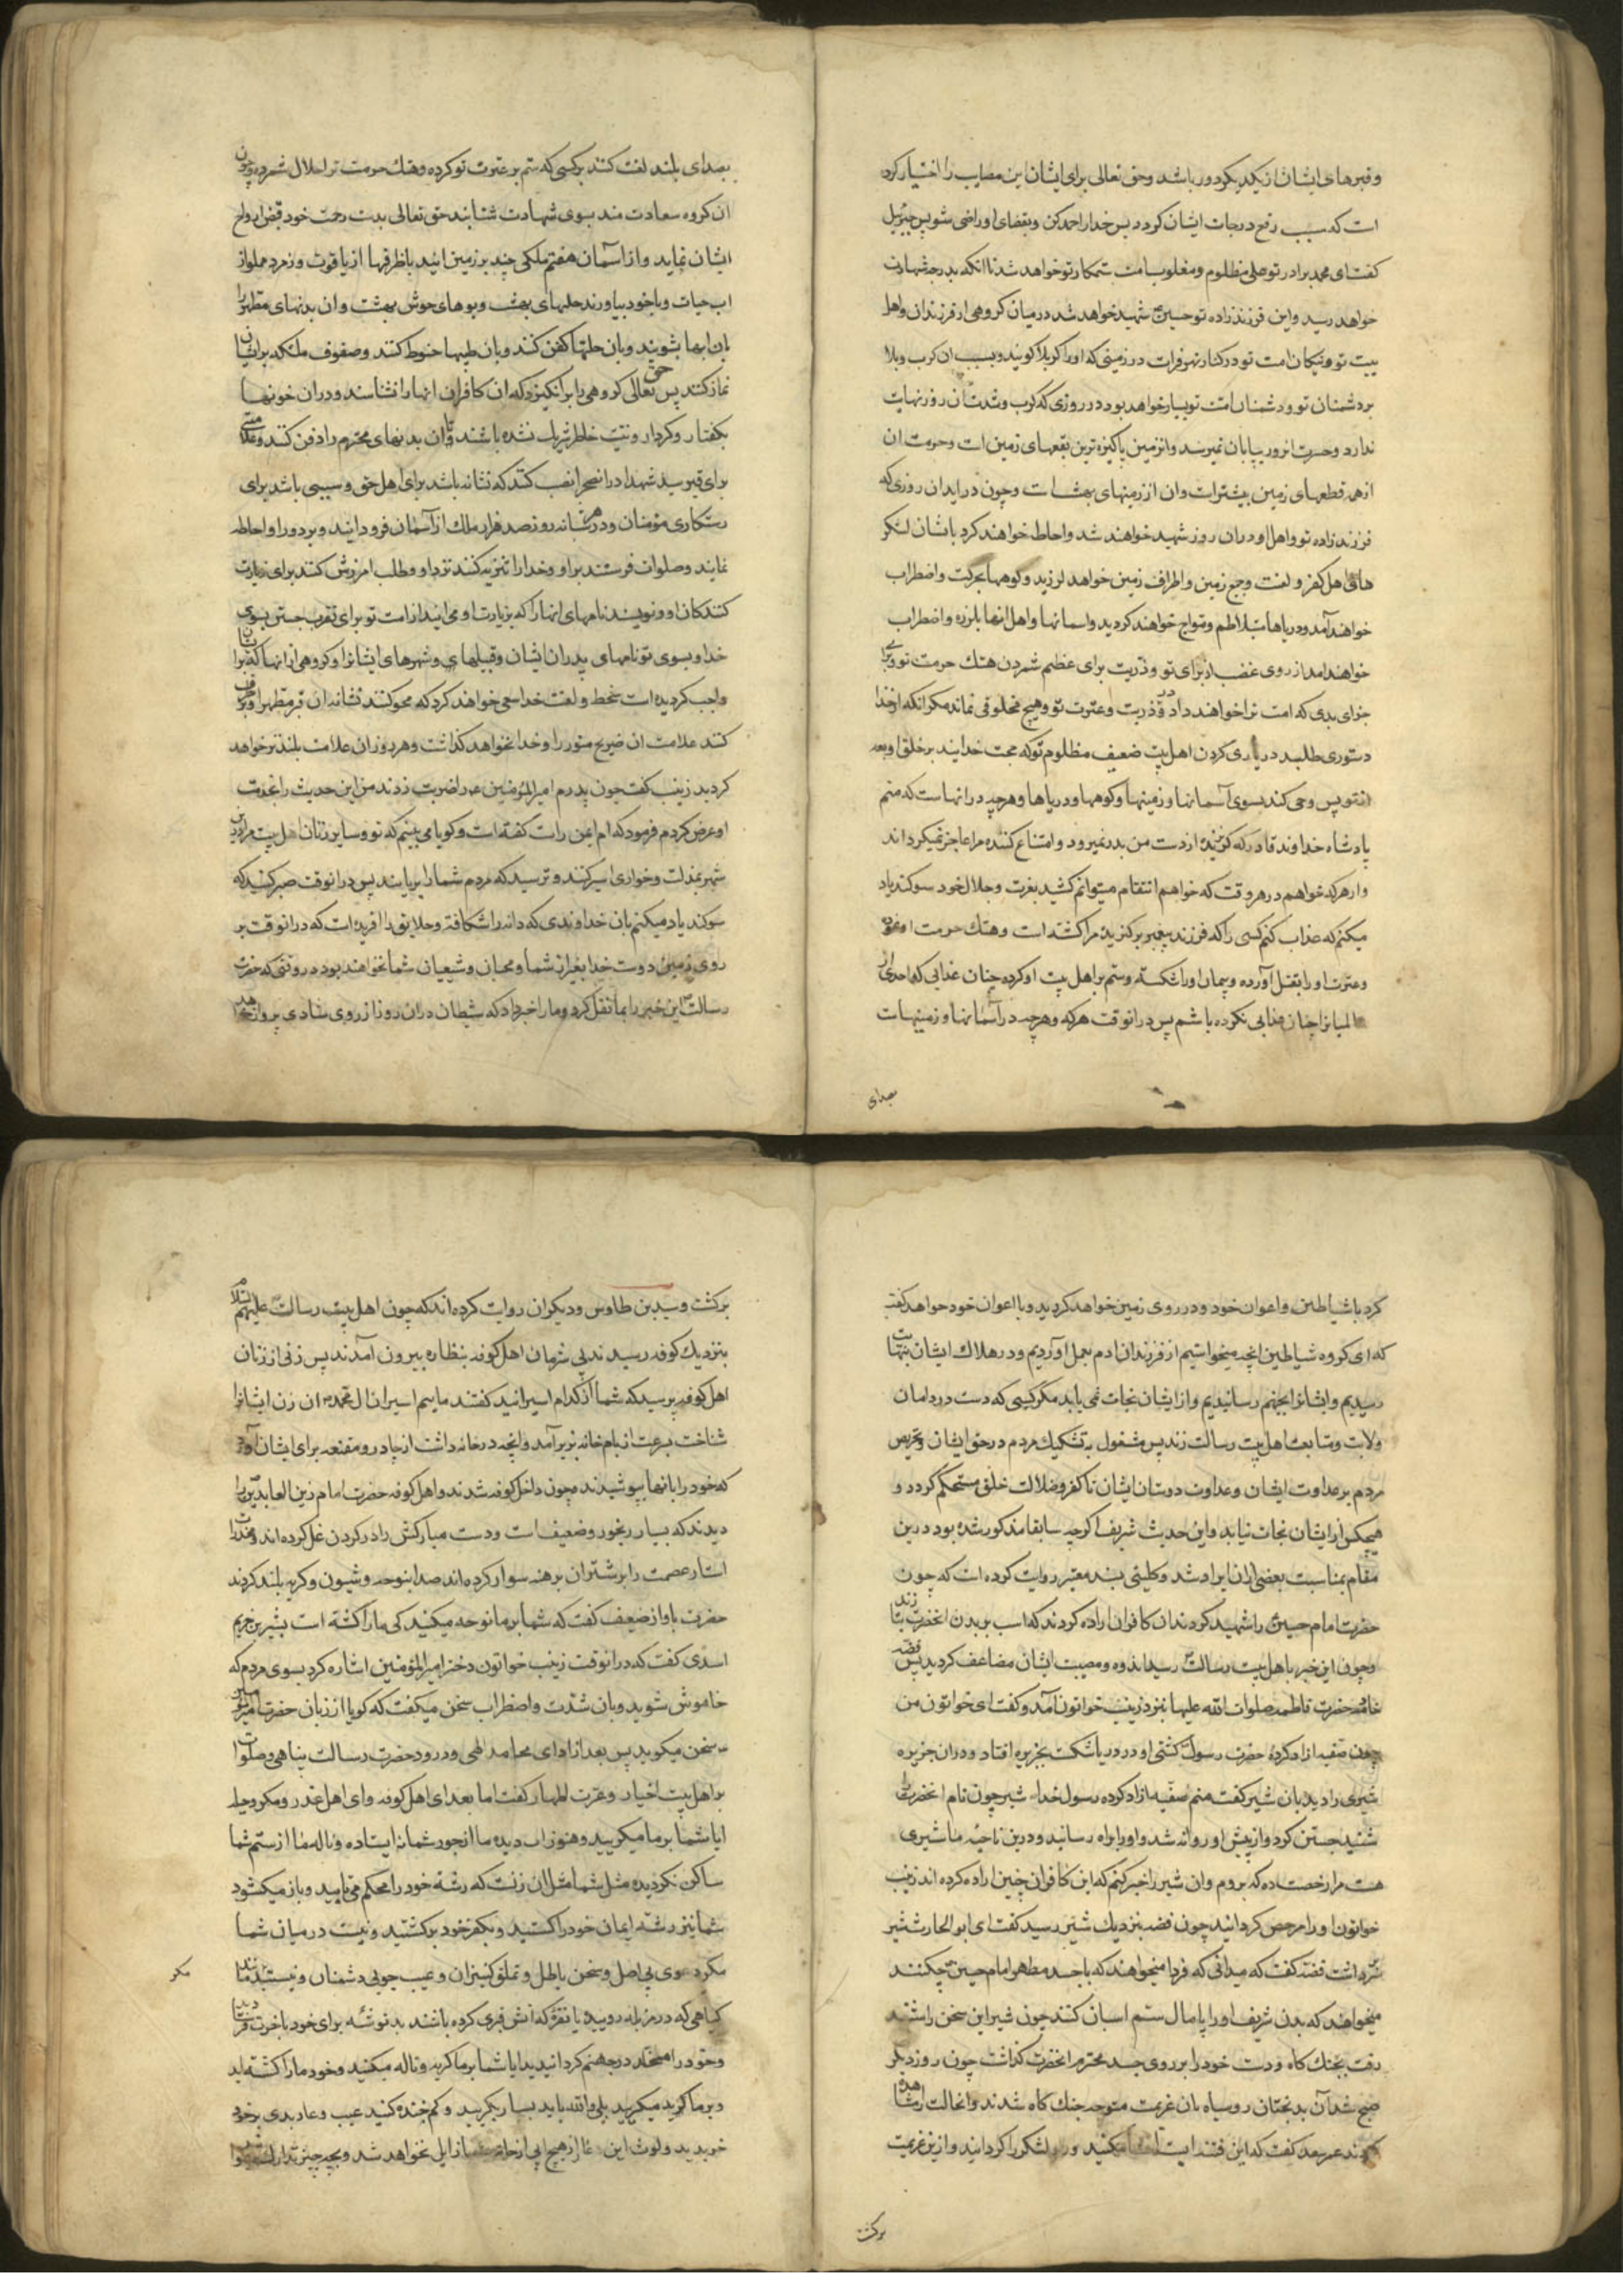 و قبرهای ایشان از یکدیکر دور باشد وحق تعالی برای ایشان این مصایب را اختیار کرده
است که سبب رفع درجات ایشان کردد پس خدا را حمد کن و بقضای او راضی شو پس جبرئیل
کفت ای محمد برادر تو علی مظلوم و مغلوب امت ستمکار تو خواهد شد تا انکه بدرجه شهادت
خواهد رسید واین فرزند زاده تو حسین شهید خواهد شد در میان کروهی از فرزندان واهل
بیت تو و نیکان امت تو در کنار نهر فرات در زمینی که او را کربلا کویند و بسبب ان کرب و بلا
بر دشمنان تو و دشمنان امت تو بسیار خواهد بود در روزی که کرب و شدت ان روز نهایت
ندارد وحسرت انروز بپایان نمیرسد وانزمین پاکیزه ترین بقعهای زمین است وحرمت ان
از همه قطعهای زمین بیشتر است وان از زمینهای بهشت است وچون در اید ان روزی که
فرزند زاده تو واهل او در ان روز شهید خواهند شد واحاطه خواهند کرد بایشان لشکر
های اهل کفر و لعنت وجمیع زمین واطراف زمین خواهد لرزید وکوهها بحرکت واضطراب
خواهند آمد ودریاها بتلاطم وتمواج خواهند کردید واسمانها واهل انها بلرزه واضطراب
خواهند امد از روی غضب از برای تو وذریت برای عظیم شمردن هتک حرمت تو وبرای
جزای بدی که امت ترا خواهند داد در ذریت وعترت تو وهیچ مخلوقی نماند مکر انکه از خدا
دستوری طلبد در یاری کردن اهل بیت ضعیف مظلوم تو که حجت خدایند بر خلق او بعد
از تو پس وحی کند بسوی آسمانها وزمینها وکوهها ودریاها وهر چه در انهاست که منم
پادشاه خداوند قادر که کریزنده از دست من بدر نمیرود وامتناع کننده مرا عاجز نمیکرداند
واز هر که خواهم در هر وقت که خواهم انتقام میتوانم کشید بعزت وجلال خود سوکند یاد
میکنم که عذاب کنم کسی را که فرزند پیغمبر برکزیده مرا کشته است وهتک حرمت او نموده
وعترت او را بقتل آورده وپیمان او را شکسته وستم بر اهل بیت او کرده چنان عذابی که احدی از
عالمیان را چنان عذابی نکرده باشم پس در انوقت هر که وهر چه در آسمانها وزمینهاست
بصدای
بصدای بلند لعنت کنند بر کسی که ستم بر عترت تو کرده وهتک حرمت ترا حلال شمرده وچون
ان کروه سعادت مند بسوی شهادت شتابند حق تعالی بدست رحمت خود قبض ارواح
ایشان نماید واز آسمان هفتم ملکی چند بر زمین ایند با ظرفها از یاقوت وزمرد مملو از
اب حیات وبا خود بیاورند حلهای بهشت وبوهای خوش بهشت وان بدنهای مطهر را
بان ابها بشویند وبان حلها کفن کنند وبان طیبها حنوط کنند وصفوف ملئکه بر ایشان
نماز کنند پس حق تعالی کروهی را بر انکیزد که ان کافران انها را نشناسند ودر ان خونها
بکفتار وکردار ونیت خاطر شریک نشده باشند تا ان بدنهای محترم را دفن کنند وعلامتی
برای قبر سید شهدا در انصحرا نصب کنند که نشانه باشد برای اهل حق وسببی باشد برای
رستکاری مؤمنان ودر هر شبانه روز صد هزار ملک از آسمان فرود ایند وبر دور او احاطه
نمایند وصلوات فرستند بر او وخدا را تنزیه کنند نزد او وطلب امرزش کنند برای زیارت
کنندکان او ونویسند نامهای انها را که بزیارت او می ایند از امت تو برای تقرب جستن بسوی
خدا وبسوی تو ونامهای پدران ایشان وقبیلهای وشهرهای ایشان را وکروهی از انها که بر ایشان
واجب کردیده است سخط و لعنت خدا سعی خواهند کرد که محو کنند نشانه ان قبر مطهر را و
کنند علامت ان ضریح منور را وخدا نخواهد کذاشت وهر روز ان علامت بلندتر خواهد
کردید زینب کفت چون پدرم امیرالمؤمنین را ضربت زدند من این حدیث را بخدمت
او عرض کردم فرمود که ام ایمن راست کفته است وکویا می بینم که تو وسایر زنان اهل بیت مرا در این
شهر بمذلت وخواری اسیر کنند وترسید که مردم شما را بربایند پس در انوقت صبر کنید که
سوکند یاد میکنم بان خداوندی که دانه را شکافته وخلایق را افریده است که در انوقت بر
روی زمین دوست خدا بغیر از شما ومحبان وشیعیان شما نخواهند بود در وقتی که حضرت
رسالت این خبر را بما نقل کرد وما را خبر داد که شیطان در ان روز از روی شادی پرواز خواهد
کرد با شیاطین واعوان خود ودر روی زمین خواهد کردید وبا اعوان خود خواهد کفت
که ای کروه شیاطین انچه میخواستیم از فرزندان ادم بعمل آوردیم ودر هلاک ایشان بنهایت
رسیدیم وایشانرا بجهنم رسانیدیم واز ایشان نجات نمی یابد مکر کسی که دست در دامان
ولایت ومتابعت اهل بیت رسالت زند پس مشغول به تشکیک مردم در حق ایشان وتحریص
مردم بر عداوت ایشان وعداوت دوستان ایشان تا کفر وضلالت خلق مستحکم کردد و
هیچکس از ایشان نجات نیابد واین حدیث شریف اکر چه سابقا مذکور شده بود در این
مقام بمناسبت بعضی از ان ایراد شد وکلینی بسند معتبر روایت کرده است که چون
حضرت امام حسین را شهید کردند ان کافران اراده کردند که اسب بر بدن انحضرت بتازند
وچون این خبر باهل بیت رسالت رسید اندوه ومصیبت ایشان مضاعف کردید پس فضه
خادمه حضرت فاطمه صلوات الله علیها بنزد زینب خواتون آمد وکفت ای خواتون من
چون سفینه ازاد کرده حضرت رسول کشتی او در دریا شکست بجزیره افتاد ودران جزیره
شیری را دید بان شیر کفت منم سفینه ازاد کرده رسول خدا شیر چون نام انحضرت را
شنید جستن کرد واز پیش او روانه شد واو را براه رسانید ودر این ناحیه ما شیری
هست مرا رخصت ده که بروم وان شیر را خبر کنم که این کافران چنین اراده کرده اند زینب
خواتون او را مرخص کردانید چون فضه بنزدیک شیر رسید کفت ای ابوالحارث شیر سر
برداشت فضه کفت که میدانی که فردا میخواهند که با جسد مطهر امام حسین چکنند
میخواهند که بدن شریف او را پامال ستم اسبان کنند چون شیر این سخن را شنید
رفت بجنک کاه ودست خود را بر روی جسد محترم انحضرت کذاشت چون روز دیکر
صبح شد آن بدبختان روسیاه بان عزیمت متوجه جنک کاه شدند وانحالت را مشاهده
کردند عمر سعد کفت که این فتنه ایست افشا مکنید ولشکر را کردانید واز این عزیمت
برکشت
برکشت وسید بن طاوس ودیکران روایت کرده اند که چون اهل بیت رسالت علیهم السلام
بنزدیک کوفه رسیدند بی شرمان اهل کوفه بنظاره بیرون آمدند پس زنی از زنان
اهل کوفه پرسید که شما از کدام اسیرانید کفتند ماییم اسیران ال محمد ان زن ایشانرا
شناخت بسرعت از بام خانه بزیر آمد وانچه در خانه داشت از چادر ومقنعه برای ایشان آورد
که خود را بانها پوشیدند وچون داخل کوفه شدند واهل کوفه حضرت امام زین العابدین را
دیدند که بسیار رنجور وضعیف است ودست مبارکش را در کردن غل کرده اند ومخدرات
استار عصمت را بر شتران برهنه سوار کرده اند صدا بنوحه وشیون وکریه بلند کردند
حضرت باواز ضعیف کفت که شما بر ما نوحه میکنید کی ما را کشته است بشیر بن خزیم
اسدی کفت که در انوقت زینب خواتون دختر امیرالمؤمنین اشاره کرد بسوی مردم که
خاموش شوید وبان شدت واضطراب سخن میکفت که کویا از زبان حضرت امیرالمؤمنین
سخن میکوید پس بعد از ادای محامد الهی ودرود حضرت رسالت پناهی وصلوات
بر اهل بیت اخیار وعترت اطهار کفت اما بعد ای اهل کوفه وای اهل غدر ومکر وحیله
ایا شما بر ما میکریید وهنوز اب دیده ما از جور شما نه ایستاده وناله ما از ستم شما
ساکن نکردیده مثل شما مثل ان زنست که رشته خود را محکم می تابید وباز میکشود
شما نیز رشته ایمان خود را کسستید وبکفر خود برکشتید ونیست در میان شما
مکر دعوی بی اصل وسخن باطل وتملق کنیزان وعیب جویی دشمنان ونیستید مانند
مکر
کیاهی که در مزبله روید یا نقره که آرایش قبری کرده باشند بد توشه برای خود باخرت فرستادید
وخود را مخلد در جهنم کردانیدید ایا شما بر ما کریه وناله میکنید وخود ما را کشته اید
وبر ما کریه میکریید بلی والله باید بسیار بکریید وکم خنده کنید عیب وعار بدی بر خود
خریدید ولوث این عار از هیچ ابی از جامه شما زایل نخواهد شد وبچه چیز تدارک